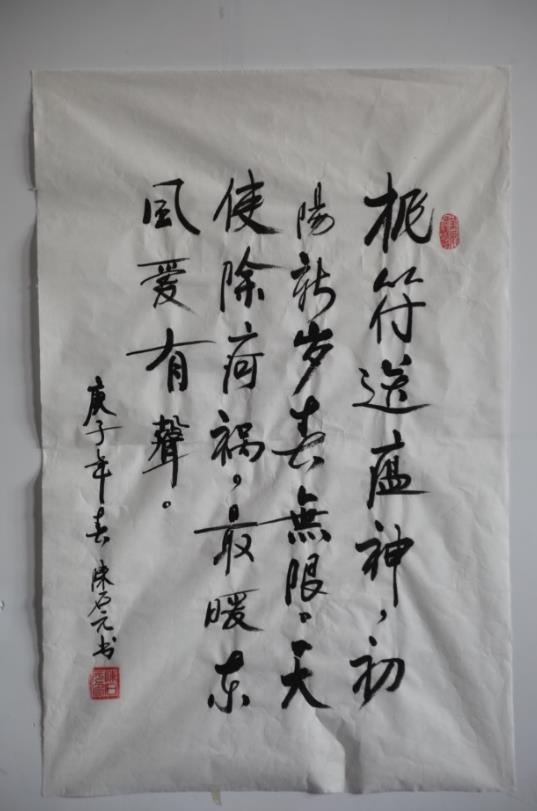 桃符送瘟神，初
陽新岁春無限。天
使除疴禍，最暖东
風爱有聲。
庚子年春 陈石元书